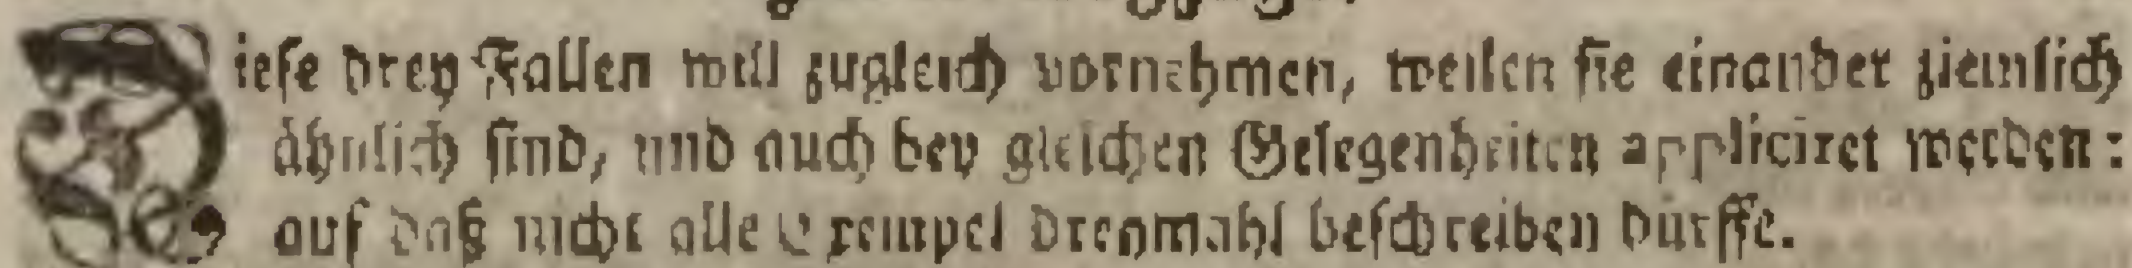 Diese drey Fallen will zugleich vornehmen, weilen sie einander ziemlich
ähnlich sind, und auch bey gleichen Gelegenheiten appliciret werden:
auf daß nicht alle Exempel dreymahl beschreiben dürffe.